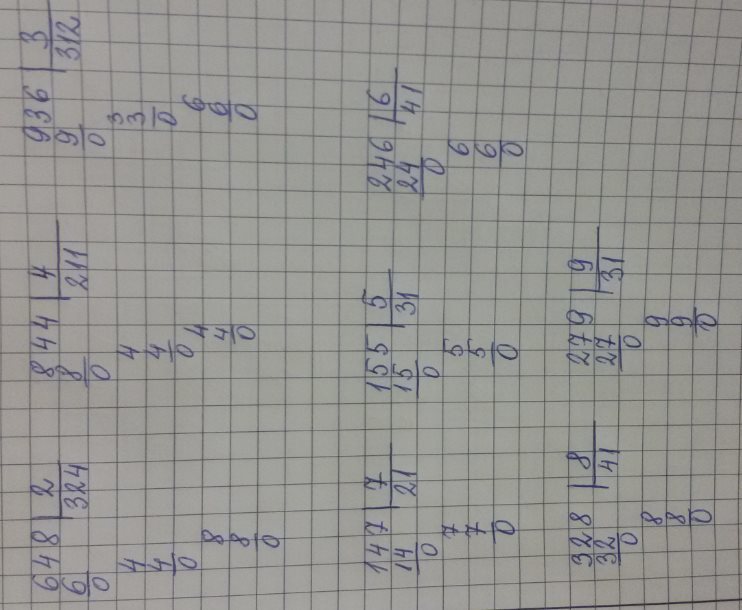 648 | 2
6 324
0
4
4
0
8
8
0
844 | 4
8 211
0
4
4
0
4
4
0
936 | 3
9 312
0
3
3
0
6
6
0
147 | 7
14 21
0
7
7
0
155 | 5
15 31
0
5
5
0
246 | 6
24 41
0
6
6
0
328 | 8
32 41
0
8
8
0
279 | 9
27 31
0
9
9
0